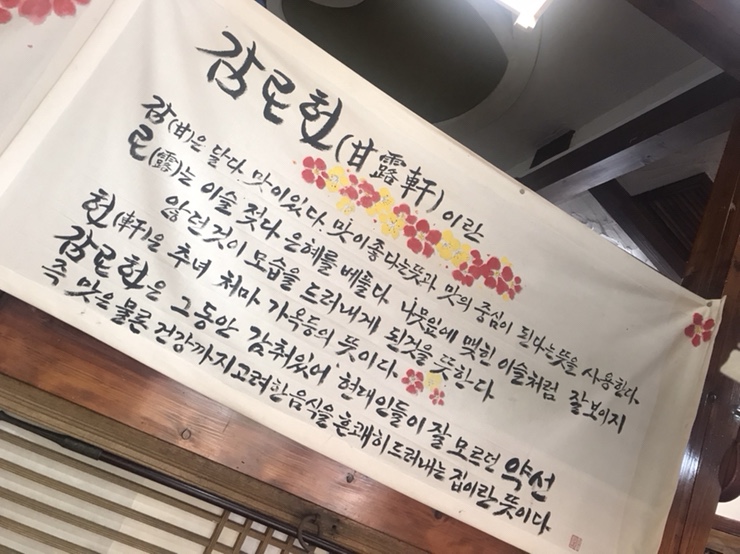 감로헌(甘露軒)이란
감(甘)은 달다. 맛이있다. 맛이좋다는뜻과, 맛의 중심이 된다는뜻을 사용한다.
로(露)는 이슬. 젖다 은혜를 베풀다. 나뭇잎에 맺힌 이슬처럼 잘보이지
않던것이 모습을 드러내게 된것을 뜻한다.
헌(軒)은 추녀 처마 가옥등의 뜻이다
감로헌은 그동안 감춰있어 현대인들이 잘 모르던 약선
즉 맛은 물론 건강까지고려한음식을 흔쾌히드러내는 집이란 뜻이다